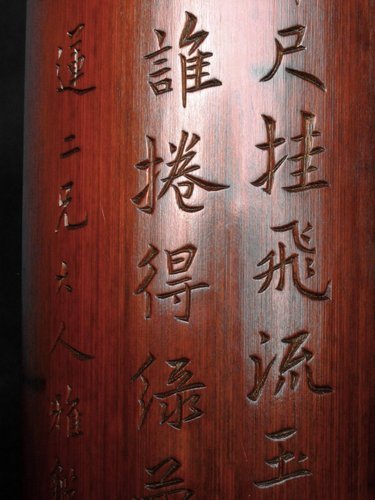 尺挂飛流玉
誰捲得綠
蓮二兄大人雅鑒